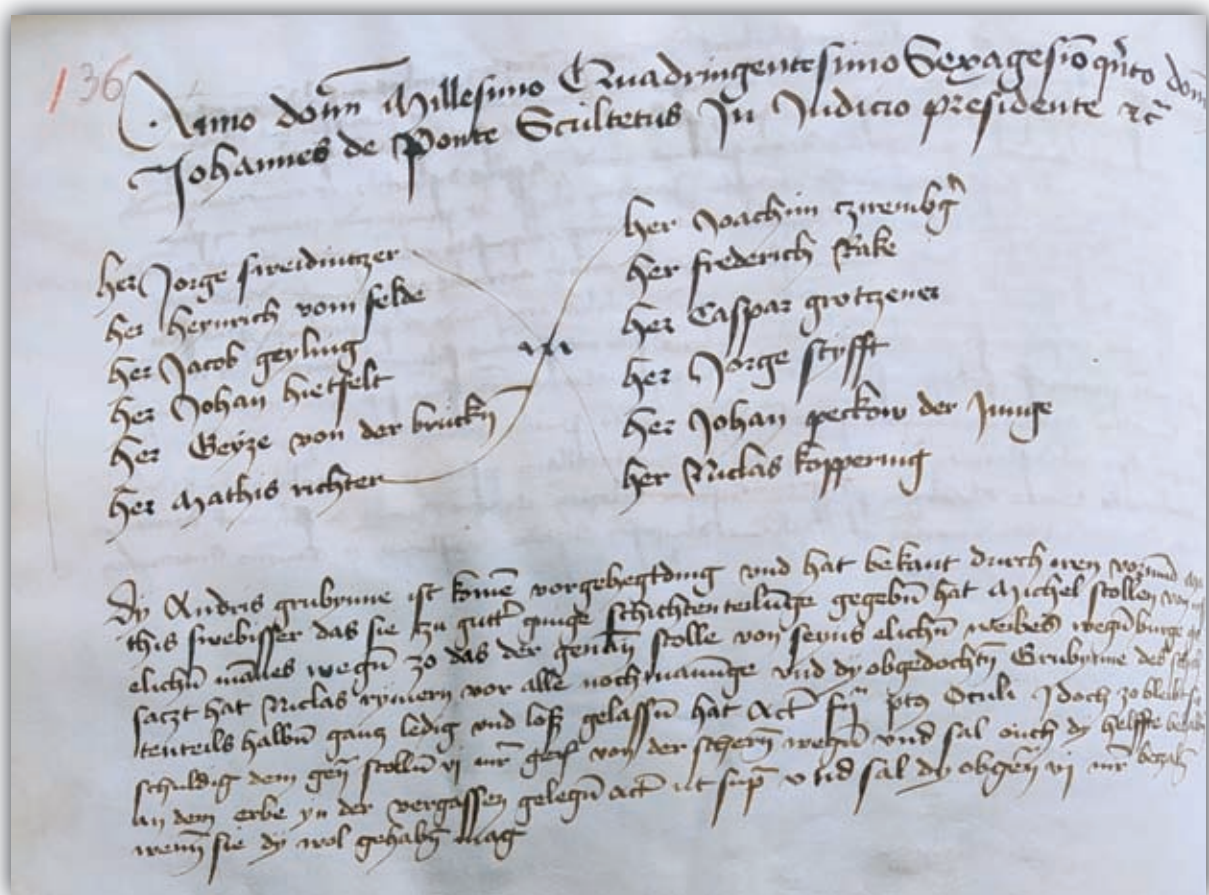 136
Anno dom̄ Millesimo Quadringentesimo Sexagesīo qn̄to dom̄
Johannes de Ponte Scultetus In Judicio presidente ꝛc̄
her Jorge sweidnitzer
her heynrich vom felde
her Jacob geyling
her Johan hietfelt
her Geyze von der brückn̄
her Mathis richter
her Joachim
her frederich Rake
her Caspar grotzener
her Jorge styfft
her Johan peckow der Junge
her Niclas koppering
Dy Andris grubynne ist komē vorgehegtding vnd hat bekant durch iren vormūd Ma
this swebisser das sie zu gutt̄ schichten teilūge gegebn̄ hat Michel stollen von irs
elichn̄ mānes wegn̄ zo das der genan̄ stolle von seyns elichn̄ weibes wegn̄ burge
saczt hat Niclas rymern vor alle noch manūge vnd dy obgedochtn̄ Grubynne des
tenteils halbn̄ gancz ledig vnd loß gelassn̄ hat Act̄ oculi Jdoch zo bleibt sie
schuldig dem gen̄ stolln̄ vj mr̄ von der wegn̄ vnd sal ouch dy helffte
an dem erbe yn der vergassen gelegn̄ act̄ ut sup̄ vnd sal dy obgen̄ vj mr̄
wen̄ sie dy wol gehabn̄ mag